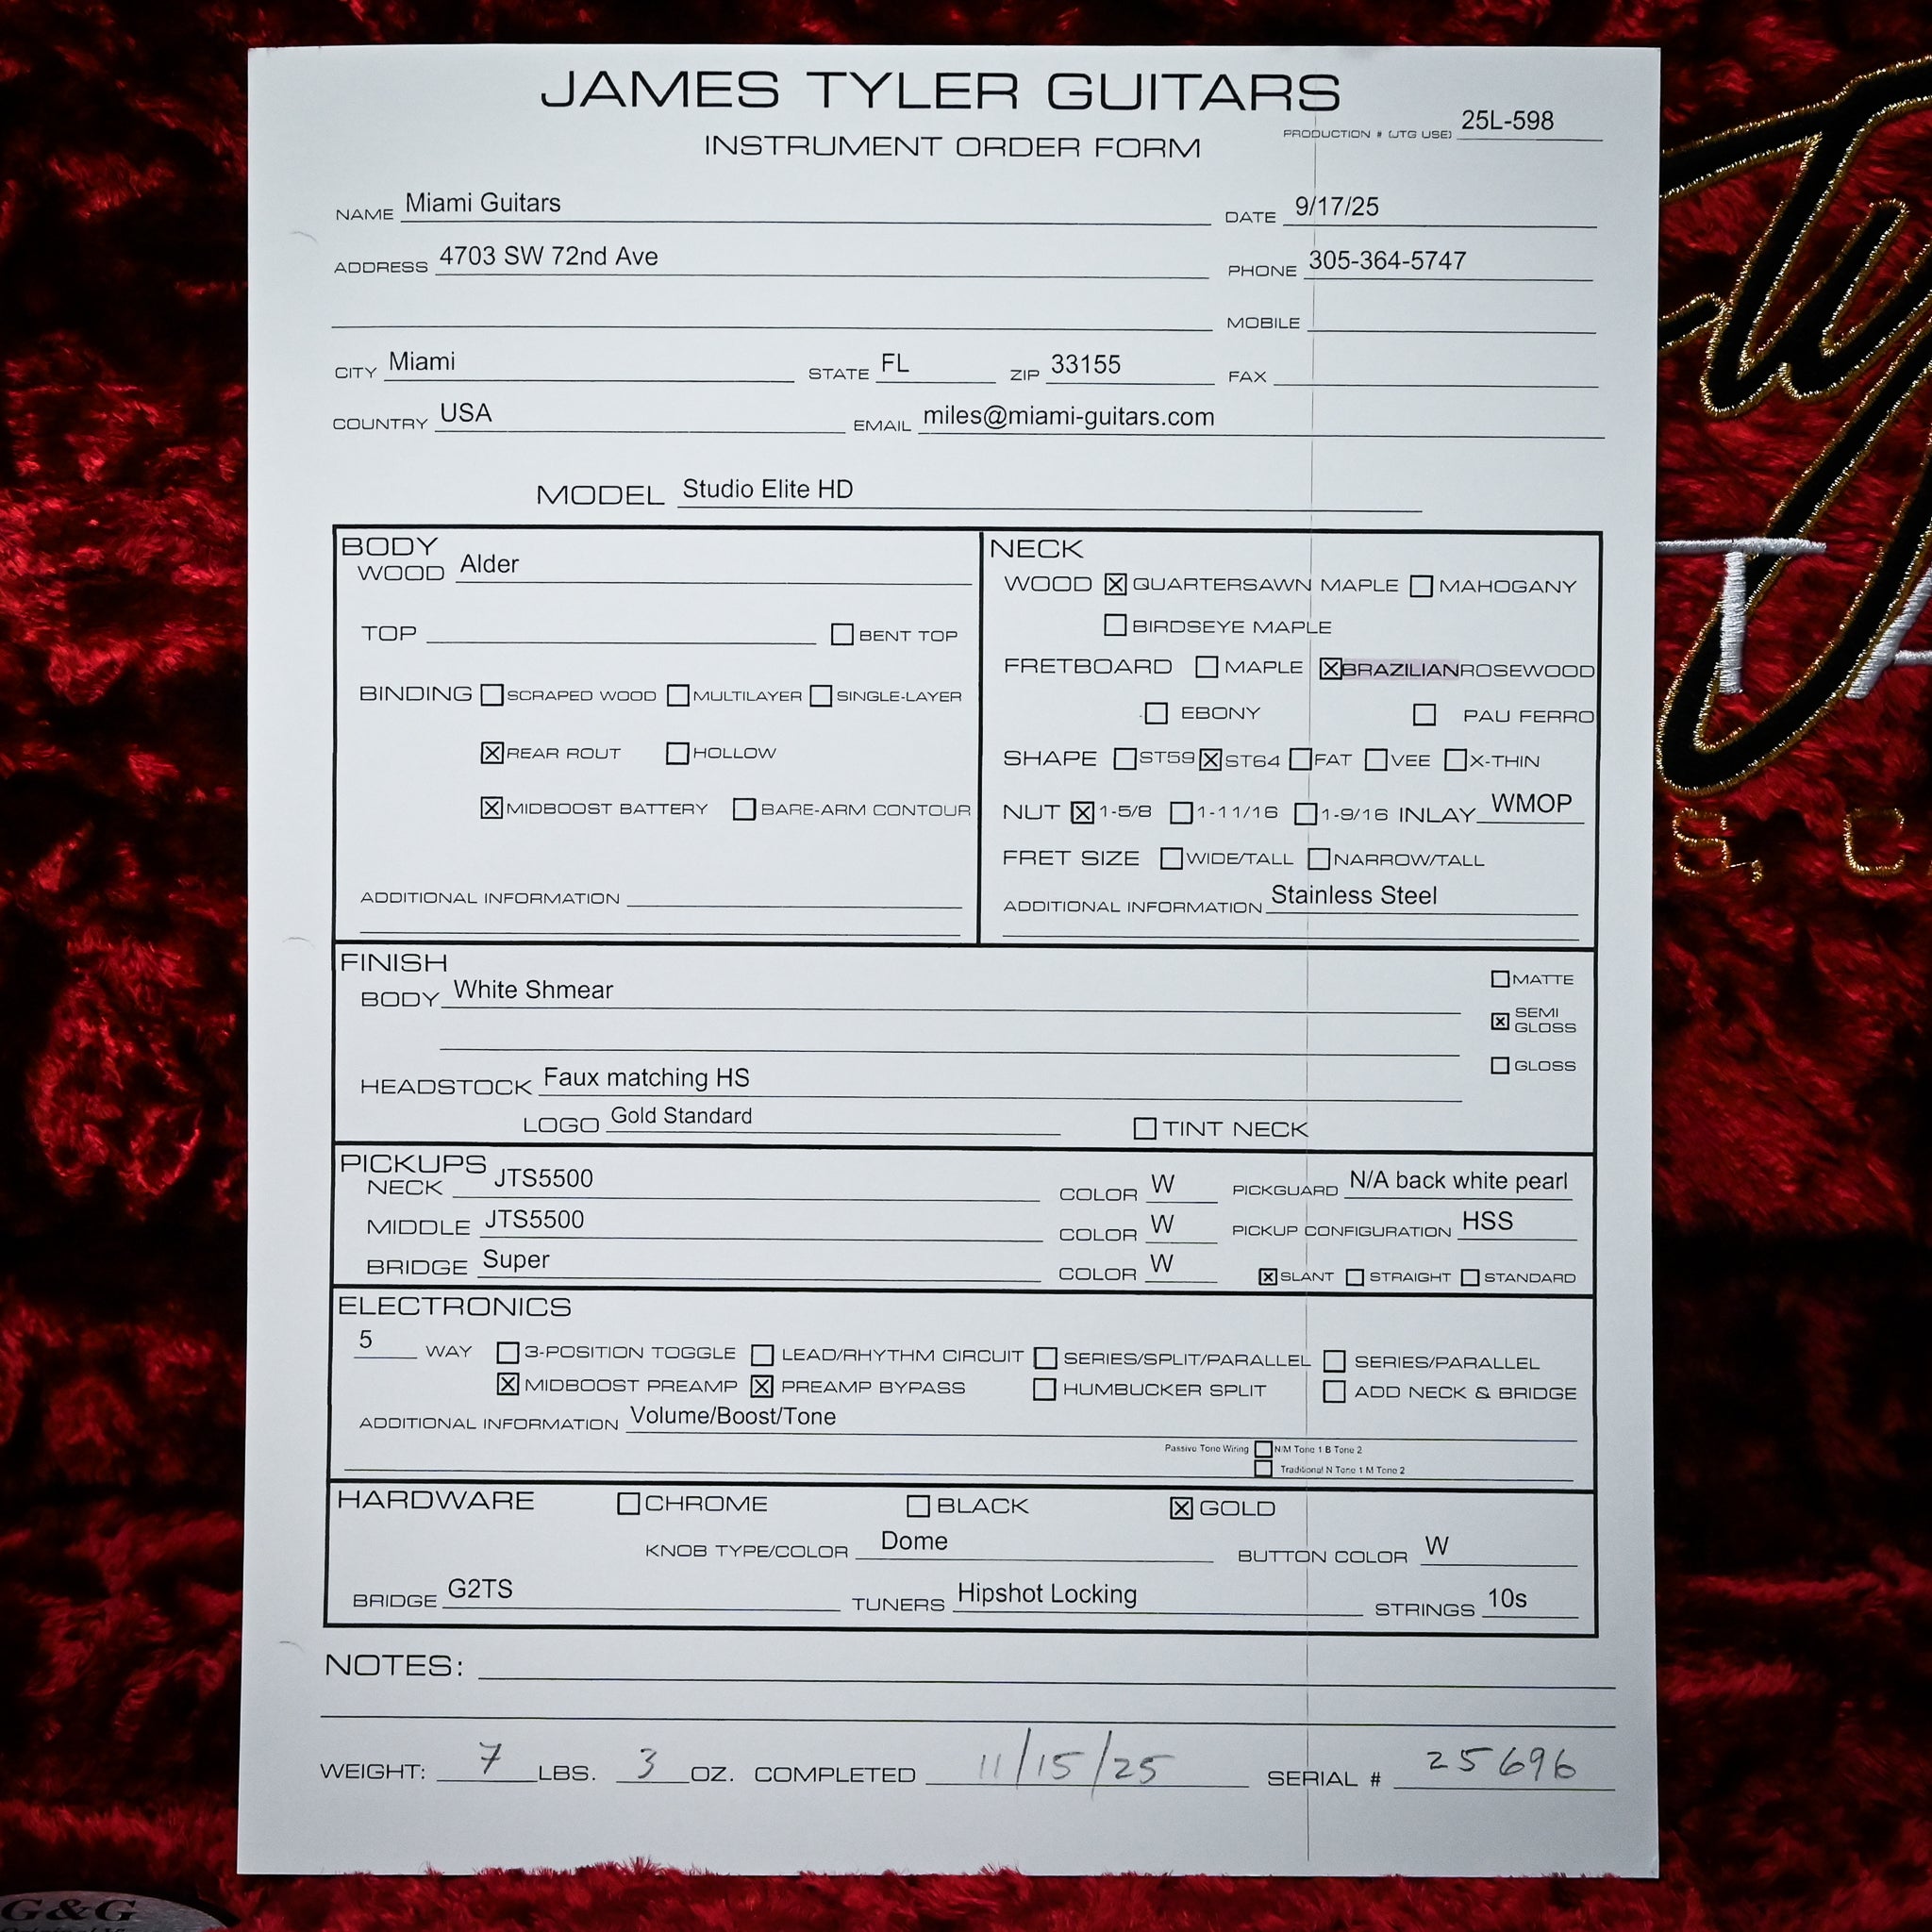 JAMES TYLER GUITARS
INSTRUMENT ORDER FORM
PRODUCTION # (JTG USE) 25L-598
NAME Miami Guitars DATE 9/17/25
ADDRESS 4703 SW 72nd Ave PHONE 305-364-5747
MOBILE
CITY Miami STATE FL ZIP 33155 FAX
COUNTRY USA EMAIL miles@miami-guitars.com
MODEL Studio Elite HD
BODY
WOOD Alder
TOP BENT TOP
BINDING SCRAPED WOOD MULTILAYER SINGLE-LAYER
X REAR ROUT HOLLOW
X MIDBOOST BATTERY BARE-ARM CONTOUR
ADDITIONAL INFORMATION
NECK
WOOD X QUARTERSAWN MAPLE MAHOGANY
BIRDSEYE MAPLE
FRETBOARD MAPLE X BRAZILIAN ROSEWOOD
EBONY PAU FERRO
SHAPE ST59 X ST64 FAT VEE X-THIN
NUT X 1-5/8 1-11/16 1-9/16 INLAY WMOP
FRET SIZE WIDE/TALL NARROW/TALL
ADDITIONAL INFORMATION Stainless Steel
FINISH
BODY White Shmear
MATTE
X SEMI GLOSS
GLOSS
HEADSTOCK Faux matching HS
LOGO Gold Standard TINT NECK
PICKUPS
NECK JTS5500 COLOR W PICKGUARD N/A back white pearl
MIDDLE JTS5500 COLOR W PICKUP CONFIGURATION HSS
BRIDGE Super COLOR W X SLANT STRAIGHT STANDARD
ELECTRONICS
5 WAY 3-POSITION TOGGLE LEAD/RHYTHM CIRCUIT SERIES/SPLIT/PARALLEL SERIES/PARALLEL
X MIDBOOST PREAMP X PREAMP BYPASS HUMBUCKER SPLIT ADD NECK & BRIDGE
ADDITIONAL INFORMATION Volume/Boost/Tone
Passive Tone Wiring N/M Tone 1 B Tone 2
Traditional N Tone 1 M Tone 2
HARDWARE CHROME BLACK X GOLD
KNOB TYPE/COLOR Dome BUTTON COLOR W
BRIDGE G2TS TUNERS Hipshot Locking STRINGS 10s
NOTES:
WEIGHT: 7 LBS. 3 OZ. COMPLETED 11/15/25 SERIAL # 25696
G&G